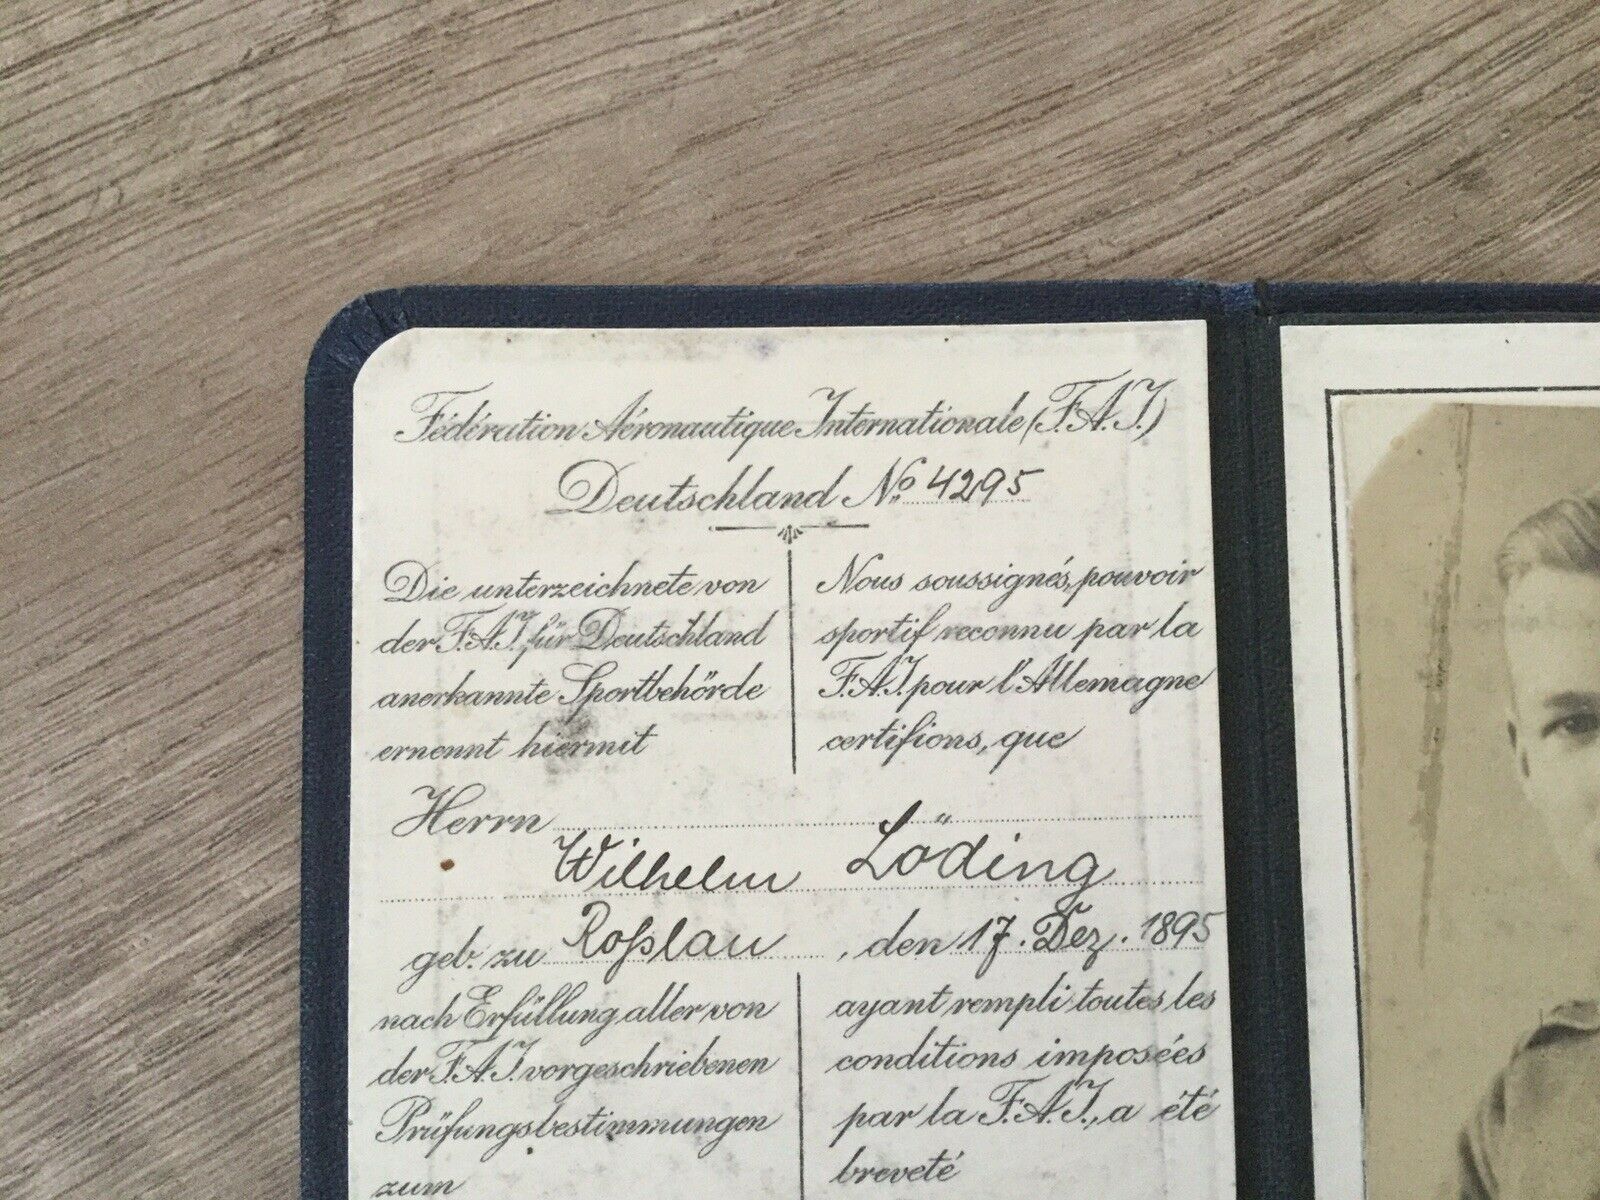 Fédération Aéronautique Internationale (F.A.I.)
Deutschland No. 4295
Die unterzeichnete von
der F.A.I. für Deutschland
anerkannte Sportbehörde
ernennt hiermit
Nous soussignés, pouvoir
sportif reconnu par la
F.A.I. pour l'Allemagne
certifions, que
Herrn
Wilhelm Löding
geb. zu Roßlau, den 17. Dez. 1895
nach Erfüllung aller von
der F.A.I. vorgeschriebenen
Prüfungsbestimmungen
zum
ayant rempli toutes les
conditions imposées
par la F.A.I., a été
breveté